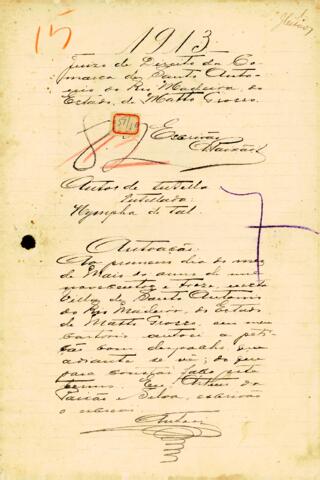 15
1913
Juizo de Direito da Co-
marca de Santo Anto-
nio do Rio Madeira, do
Estado de Matto Grosso.
82
Escrivão
Autos de tutella
Tutellada:
Nympha de Tal.
Autoação.
Ao primeiro dia do mez
de Maio do anno de mil
novecentos e treze, nesta
Villa de Santo Antonio
do Rio Madeira, do Estado
de Matto Grosso, em meu
cartorio autuei a peti-
ção com despacho que
adiante se vê; do que
para constar faço este
termo. Eu, Arthur da
Paixão e Silva, escrivão
o escrevi.